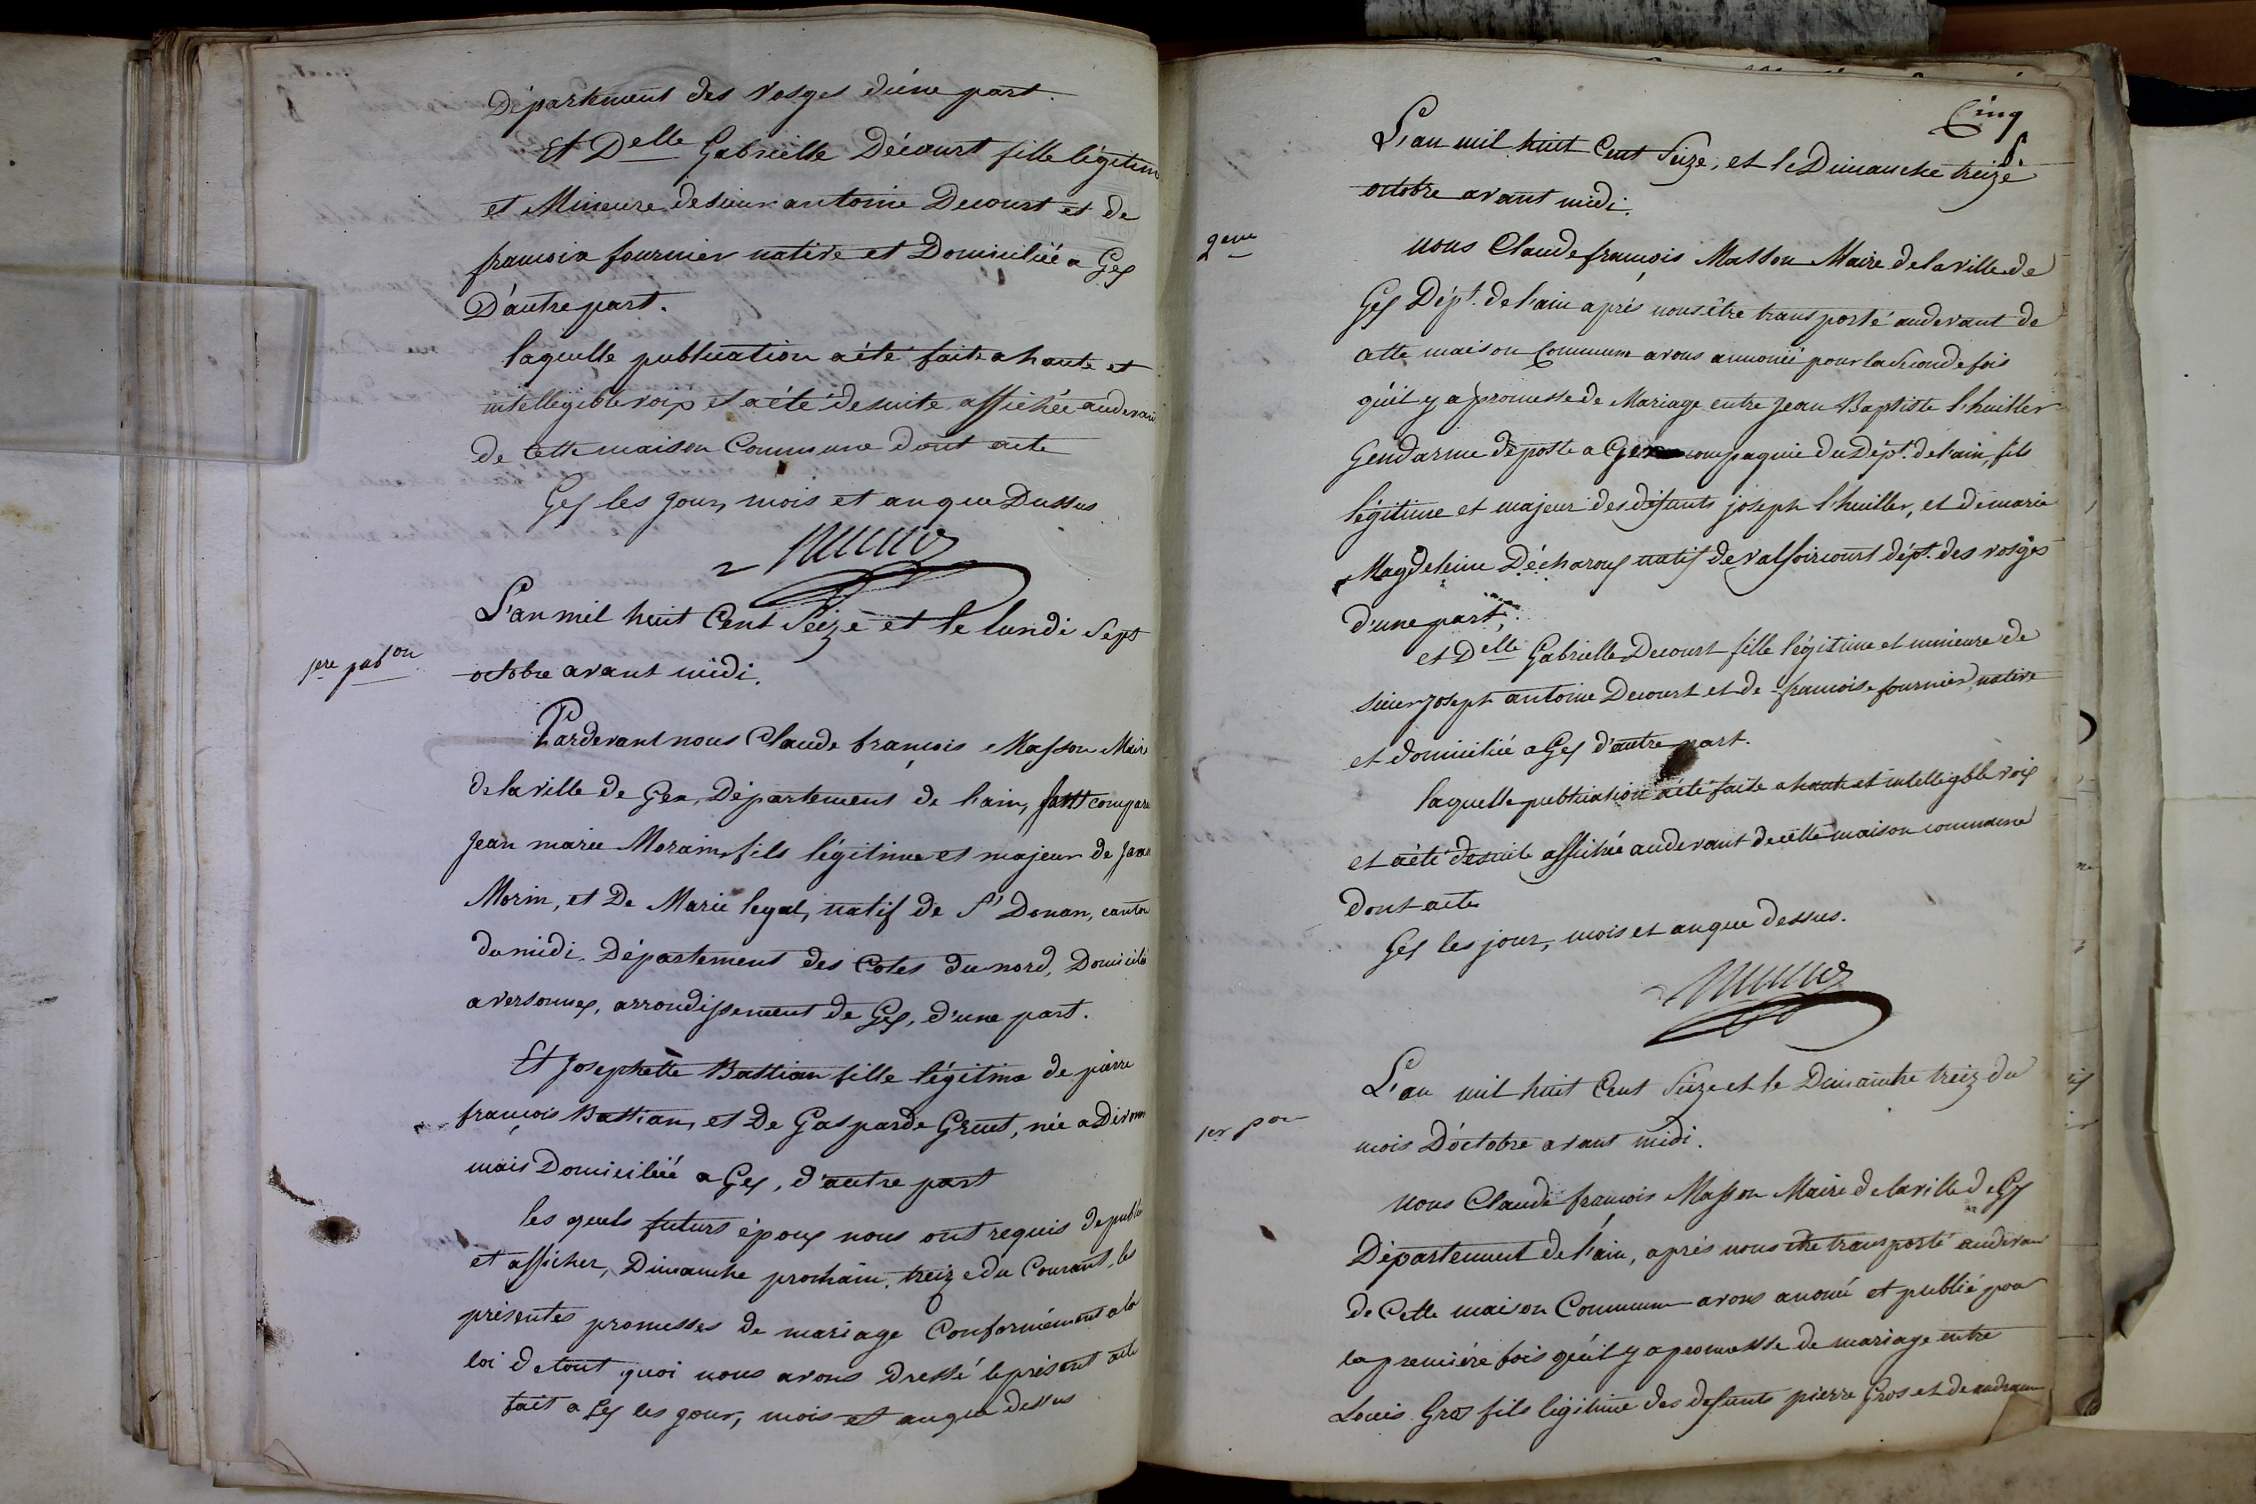 Département des Vosges d'une part.
Et Delle Gabrielle Décourt fille légitim
et Mineure de sieur antoine Decourt et de
françoise fournier native et Domiciliée a Gex
D'autre part.
laquelle publication a été faite a haute et
intelligible voix et a été de suite affichée au devant
de Cette maison Commune dont acte
Gex les jour, mois et an que Dessus
L'an mil huit Cent Seize et le lundi Sept
1ere pubon
octobre avant midi.
Pardevant nous Claude françois Masson Maire
de la ville de Gex, Département de l'ain, sont compar
Jean marie Morain fils légitime et majeur de Jean
Morin, et De Marie legal, natif de St Donan, canton
du midi. Département des Cotes du nord, Domicilié
a versonnex, arrondissement de Gex, d'une part.
Et Josephette Bastian fille légitime de pierre
françois Bastian, et De Gasparde Gruet, née a Divonne
mais Domiciliée a Gex, d'autre part
les quels futurs époux nous ont requis de publier
et afficher, Dimanche prochain, treize du Courant, les
présentes promesses de mariage Conformément a la
loi de tout quoi nous avons dressé le présent acte
fait a Gex les jour, mois et an que dessus
Cinq
5.
L'an mil huit Cent Seize, et le Dimanche treize
octobre avant midi.
2eme
nous Claude françois Masson Maire de la ville de
Gex Dépt. de l'ain après nous être transporté au devant de
cette maison Commune avons annoncé pour la Seconde fois
qu'il y a promesse de Mariage entre Jean Baptiste l'huillier
Gendarme de poste a Gex compagnie du Dépt. de l'ain, fils
légitime et majeur des défunts joseph l'huiller, et de marie
Magdeleine Décharoux natif de valfoircourt dépt. des vosges
d'une part,
et Delle Gabrielle Decourt fille légitime et mineure de
sieur joseph antoine Decourt et de francoise fournier, native
et domiciliée a Gex d'autre part.
laquelle publication a été faite a haute et intelligible voix
et a été de suite affichée au devant de cette maison commune
dont acte
Gex les jour, mois et an que dessus.
L'an mil huit Cent Seize et le Dimanche treiz du
1er pon
mois D'octobre avant midi.
nous Claude françois Masson Maire de la ville de Gex
Département de l'ain, après nous être transporté au devan
de Cette maison Commune avons anoncé et publié pour
la première fois qu'il y a promesse de mariage entre
Louis Gros fils légitime des defunts pierre Gros et de